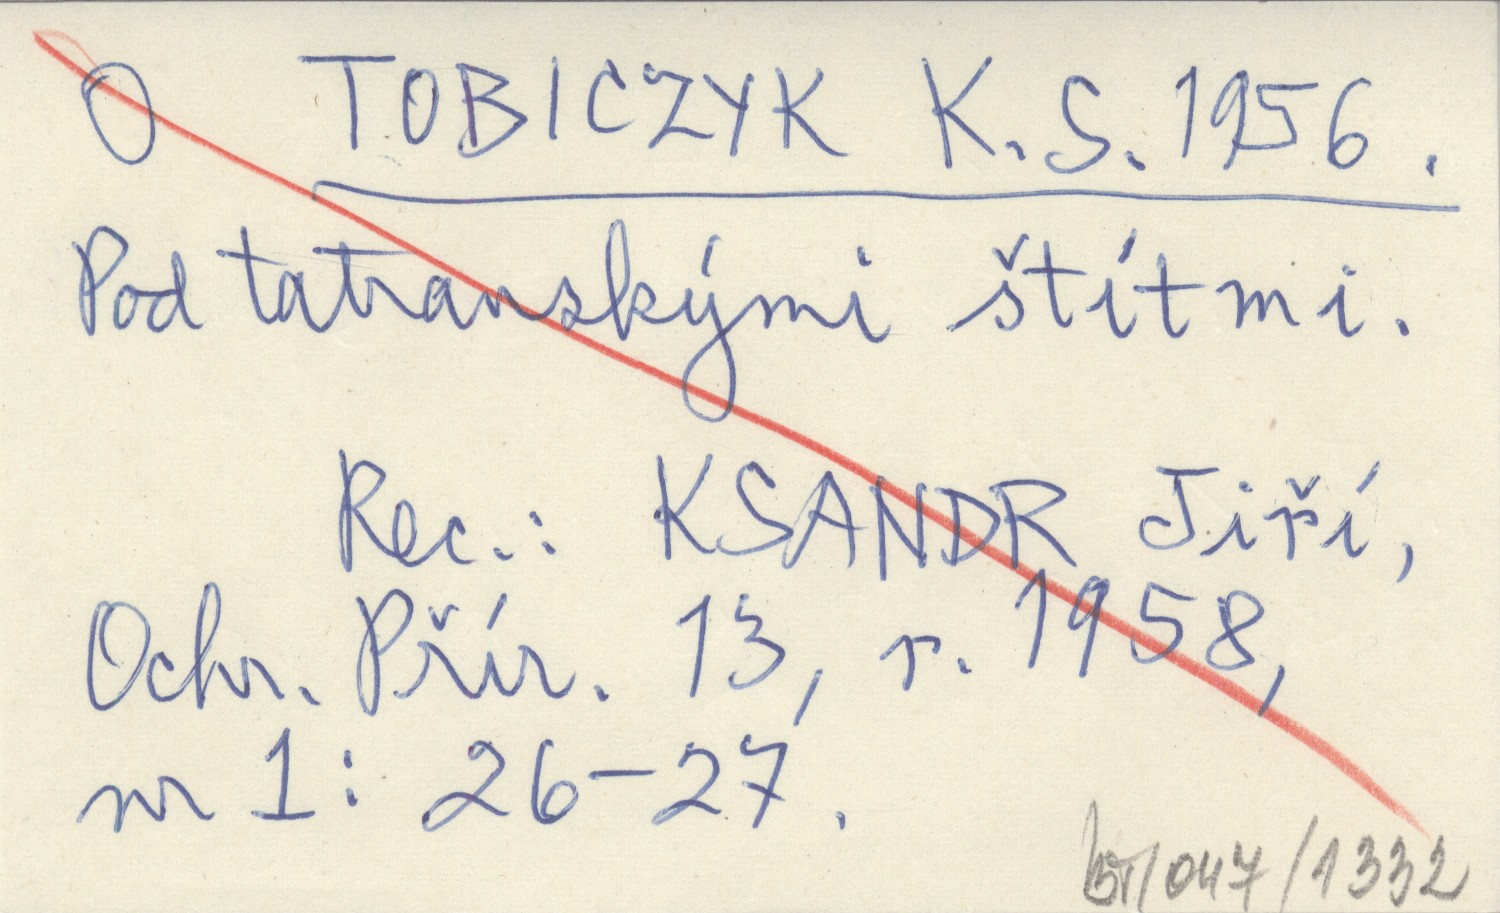 O TOBICZYK K.S. 1956.
Pod tatranskými štítmi.
Rec.: KSANDR Jiří,
Ochr. Přír. 13, r. 1958,
nr 1: 26-27.
/047/1332